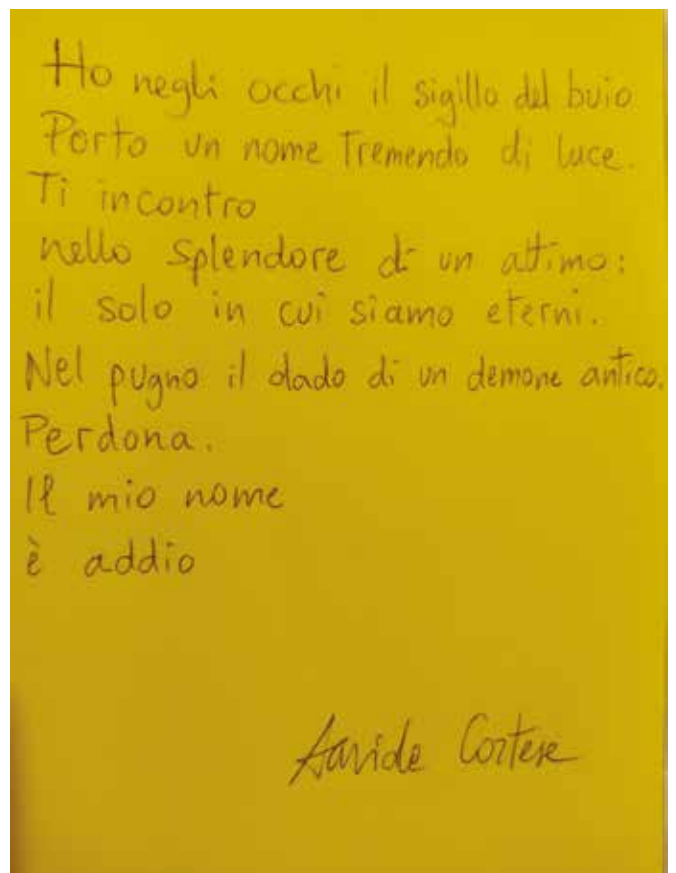 Ho negli occhi il sigillo del buio
Porto un nome Tremendo di luce.
Ti incontro
nello splendore di un attimo:
il solo in cui siamo eterni.
Nel pugno il dado di un demone antico.
Perdona.
Il mio nome
è addio
Davide Cortese